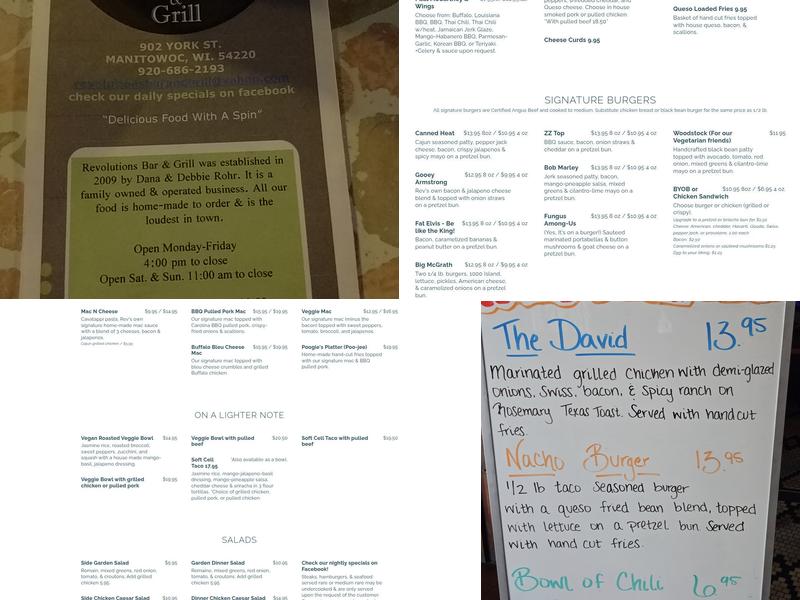 &
Grill
902 YORK ST.
MANITOWOC, WI. 54220
920-686-2193
check our daily specials on facebook
"Delicious Food With A Spin"
Revolutions Bar & Grill was established in
2009 by Dana & Debbie Rohr. It is a
family owned & operated business. All our
food is home-made to order & is the
loudest in town.
Open Monday-Friday
4:00 pm to close
Open Sat. & Sun. 11:00 am to close
Wings
Choose from: Buffalo, Louisiana
BBQ, BBQ, Thai Chili, Thai Chili
w/heat, Jamaican Jerk Glaze,
Mango-Habanero BBQ, Parmesan-
Garlic, Korean BBQ, or Teriyaki.
+Celery & sauce upon request
peppers, shredded cheddar, and
Queso cheese. Choice in house
smoked pork or pulled chicken
*With pulled beef 18.50*
Cheese Curds 9.95
Queso Loaded Fries 9.95
Basket of hand cut fries topped
with house queso, bacon, &
scallions.
SIGNATURE BURGERS
All signature burgers are Certified Angus Beef and cooked to medium. Substitute chicken breast or black bean burger for the same price as 1/2 lb.
Canned Heat $13.95 8oz / $10.95 4 oz
Cajun seasoned patty, pepper jack
cheese, bacon, crispy jalapenos &
spicy mayo on a pretzel bun.
Gooey $12.95 8 oz / $9.95 4 oz
Armstrong
Rev's own bacon & jalapeno cheese
blend & topped with onion straws
on a pretzel bun.
Fat Elvis - Be $13.95 8 oz / $10.95 4 oz
like the King!
Bacon, caramelized bananas &
peanut butter on a pretzel bun.
Big McGrath $12.95 8 oz / $9.95 4 oz
Two 1/4 lb. burgers, 1000 Island,
lettuce, pickles, American cheese,
& caramelized onions on a pretzel
bun.
ZZ Top $13.95 8 oz / $10.95 4 oz
BBQ sauce, bacon, onion straws &
cheddar on a pretzel bun.
Bob Marley $13.95 8 oz / $10.95 4 oz
Jerk seasoned patty, bacon,
mango-pineapple salsa, mixed
greens & cilantro-lime mayo on a
pretzel bun.
Fungus $13.95 8 oz / $10.95 4 oz
Among-Us
(Yes, it's on a burger!) Sauteed
marinated portabellas & button
mushrooms & goat cheese on a
pretzel bun.
Woodstock (For our $11.95
Vegetarian friends)
Handcrafted black bean patty
topped with avocado, tomato, red
onion, mixed greens & cilantro-lime
mayo on a pretzel bun.
BYOB or $10.95 8oz/ $6.95 4 oz
Chicken Sandwich
Choose burger or chicken (grilled or
crispy).
Upgrade to a pretzel or brioche bun for $1.50
Cheese: American, cheddar, Havarti, Gouda, Swiss,
pepper jack, or provolone. 1.00 each
Bacon: $2.50
Caramelized onions or sautéed mushrooms $1.25
Egg to your liking: $1.25
Mac N Cheese $9.95 / $14.95
Cavatappi pasta, Rev's own
signature home-made mac sauce
with a blend of 3 cheeses, bacon &
jalapenos.
BBQ Pulled Pork Mac $15.95 / $19.95
Our signature mac topped with
Carolina BBQ pulled pork, crispy-
fried onions & scallions.
Buffalo Bleu Cheese $13.95 / $19.95
Mac
Our signature mac topped with
bleu cheese crumbles and grilled
Buffalo chicken.
Veggie Mac $12.95 / $16.95
Our signature mac (minus the
bacon) topped with sweet peppers,
tomato, broccoli, and jalapeno.
Poogie's Platter (Poo-jee) $19.95
Home-made hand-cut fries topped
with our signature mac & BBQ
pulled pork.
ON A LIGHTER NOTE
Vegan Roasted Veggie Bowl $14.95
Jasmine rice, roasted broccoli,
sweet peppers, zucchini, and
squash with a house made mango-
basil, jalapeno dressing.
Veggie Bowl with grilled $19.95
chicken or pulled pork
Veggie Bowl with pulled $20.50
beef
Soft Cell *Also available as a bowl.
Taco 17.95
Jasmine rice, mango-jalapeno-basil
dressing, mango-pineapple salsa,
cheddar cheese & sriracha in 3 flour
tortillas. *Choice of grilled chicken,
pulled pork, or pulled chicken.
Soft Cell Taco with pulled beef $19.50
SALADS
Side Garden Salad $5.95
Romain, mixed greens, red onion,
tomato, & croutons. Add grilled
chicken 5.95
Side Chicken Caesar Salad $10.95
Garden Dinner Salad $10.95
Romaine, mixed greens, red onion,
tomato, & croutons. Add grilled
chicken 5.95
Dinner Chicken Caesar Salad $14.95
Check our nightly specials on
Facebook!
Steaks, hamburgers, & seafood
served rare or medium rare may be
undercooked & are only served
upon the request of the customer
The David 13.95
Marinated grilled chicken with demi-glazed
onions, Swiss, bacon, & spicy ranch on
Rosemary Texas Toast. Served with hand cut
fries.
Nacho Burger 13.95
1/2 lb taco seasoned burger
with a queso fried bean blend, topped
with lettuce on a pretzel bun. Served
with hand cut fries.
Bowl of Chili 6.95